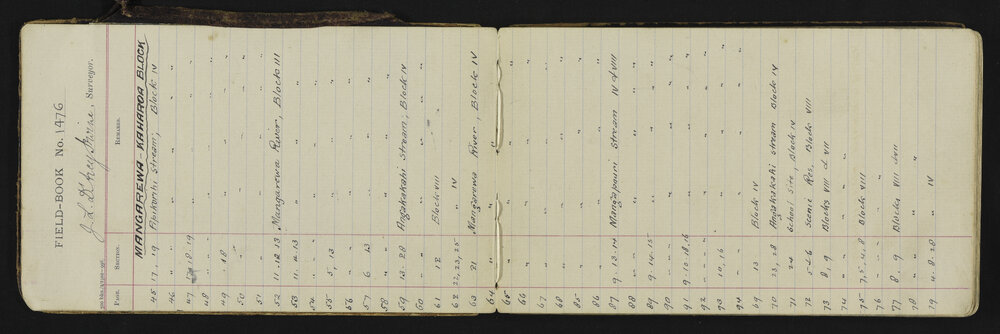 FIELD-BOOK No. 1476
Surveyor.
PAGE. SECTION. REMARKS.
MANGAREWA-KAHAROA BLOCK
45 17, 19 Stream, Block IV
46 " " "
47 18-19 "
48 " " "
49 18 "
50 " "
51 " "
52 11.12.13 Mangarewa River, Block III
53 11.12.13 " "
54 " " "
55 5, 13 " "
56 " " "
57 6 13 " "
59 13.28 Angakakahi Stream, Block IV
60 " " "
61 12 Block VIII "
62 22,23,25 " IV
63 21 Mangarewa River, Block IV
64 " " "
65 " " "
66 " " "
67 " " "
68 " " "
85 " " "
86 " " "
87 9.13.14 Mangapouri Stream IV & VIII
88 " " "
89 9-14-15 " "
90 " " "
91 9-10-18.16 " "
92 " " "
93 10, 16 " "
94 " " "
69 13 Block IV
70 23, 28 Angakakahi stream Block IV
71 24 School Site Block IV
72 5-6 Scenic Res. Block VIII
73 8, 9 Blocks VIII & VII
74 " "
75 7, 5, 4, 8 Block VIII
76 " "
77 8, 9 Blocks VIII & VII
78 " "
79 4-8-28 " IV